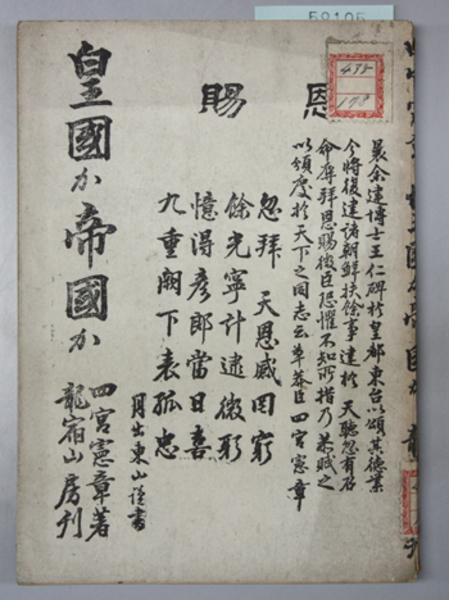 恩賜
曩余建博士王仁碑於皇都東台以頌其德業
今將復建諸朝鮮扶餘事達於 天聽忽有召
命辱拜恩賜微臣恐懼不知所措乃恭賦之
以頒慶於天下之同志云草莽臣四宮憲章
忽拜 天恩感罔窮
餘光寧計逮微躬
憶得彥郎當日喜
九重闕下表孤忠
月出東山謹書
皇國か帝國か
四宮憲章著
龍宿山房刊
438
178